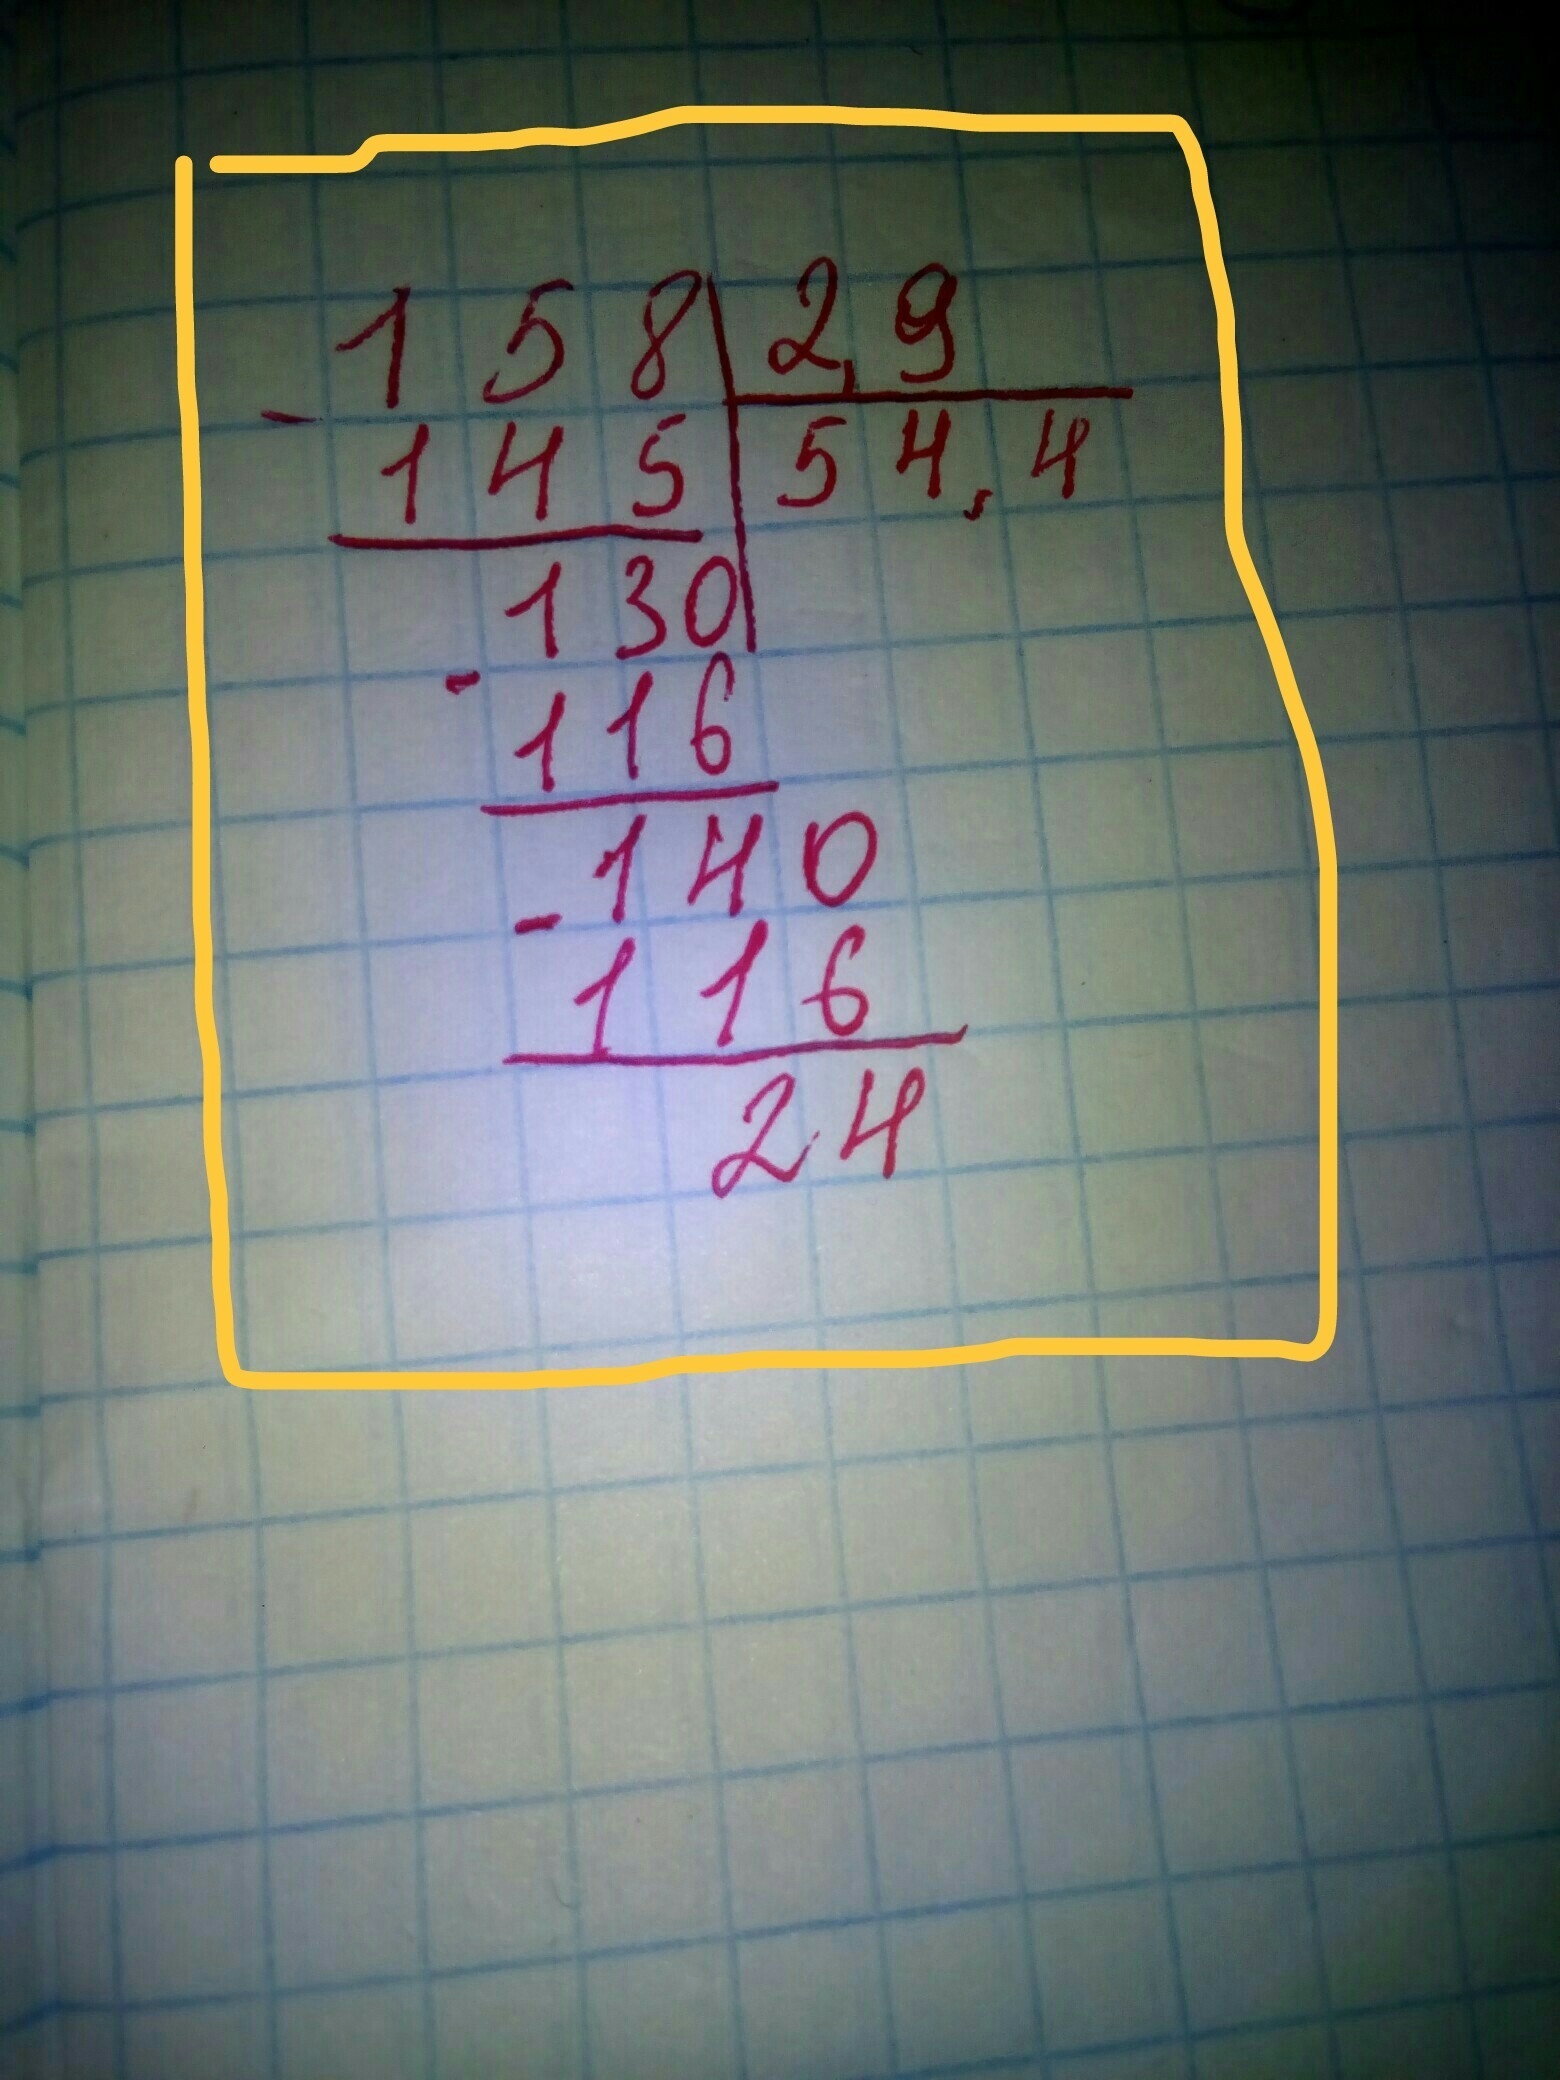 158 2,9
- 145 54,4
130
- 116
140
- 116
24